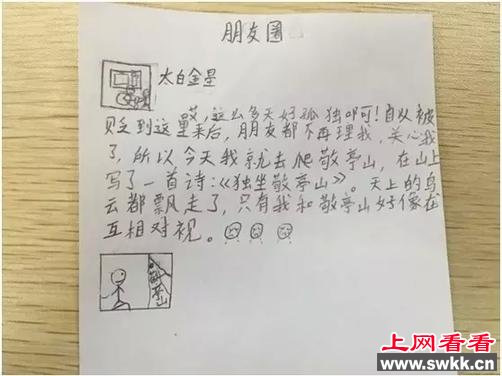 朋友圈
太白金星
哎,这么多天好孤独啊!自从被
贬到这里来后,朋友都不再理我,关心我
了,所以今天我就去爬敬亭山,在山上
写了一首诗:《独坐敬亭山》。天上的鸟
云都飘走了,只有我和敬亭山好像在
互相对视。
敬亭山
上网看看
www.swkk.cn